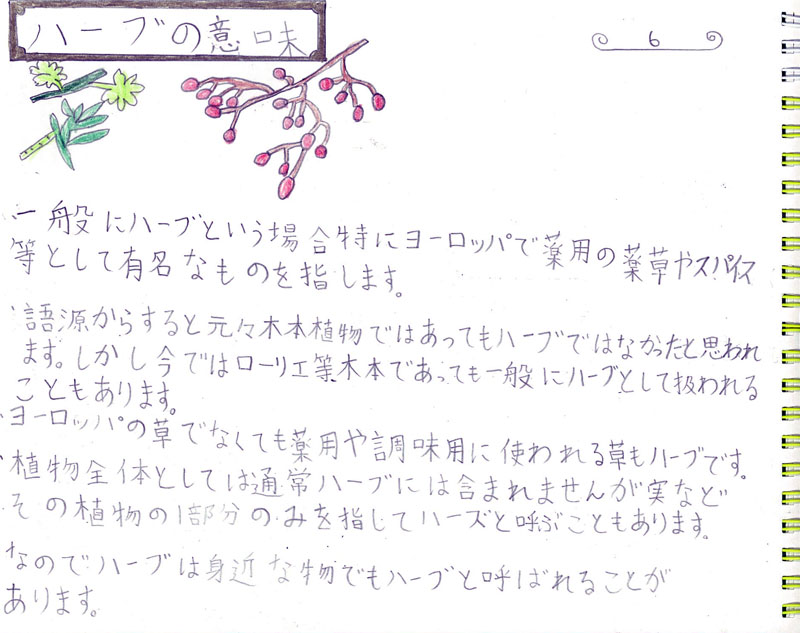 ハーブの意味
6
一般にハーブという場合特にヨーロッパで薬用の薬草やスパイス
等として有名なものを指します。
・語源からすると元々木本植物ではあってもハーブではなかったと思われ
ます。しかし今ではローリエ等木本であっても一般にハーブとして扱われる
こともあります。
・ヨーロッパの草でなくても薬用や調味用に使われる草もハーブです。
・植物全体としては通常ハーブには含まれませんが実など
その植物の1部分のみを指してハーズと呼ぶこともあります。
なのでハーブは身近な物でもハーブと呼ばれることが
あります。